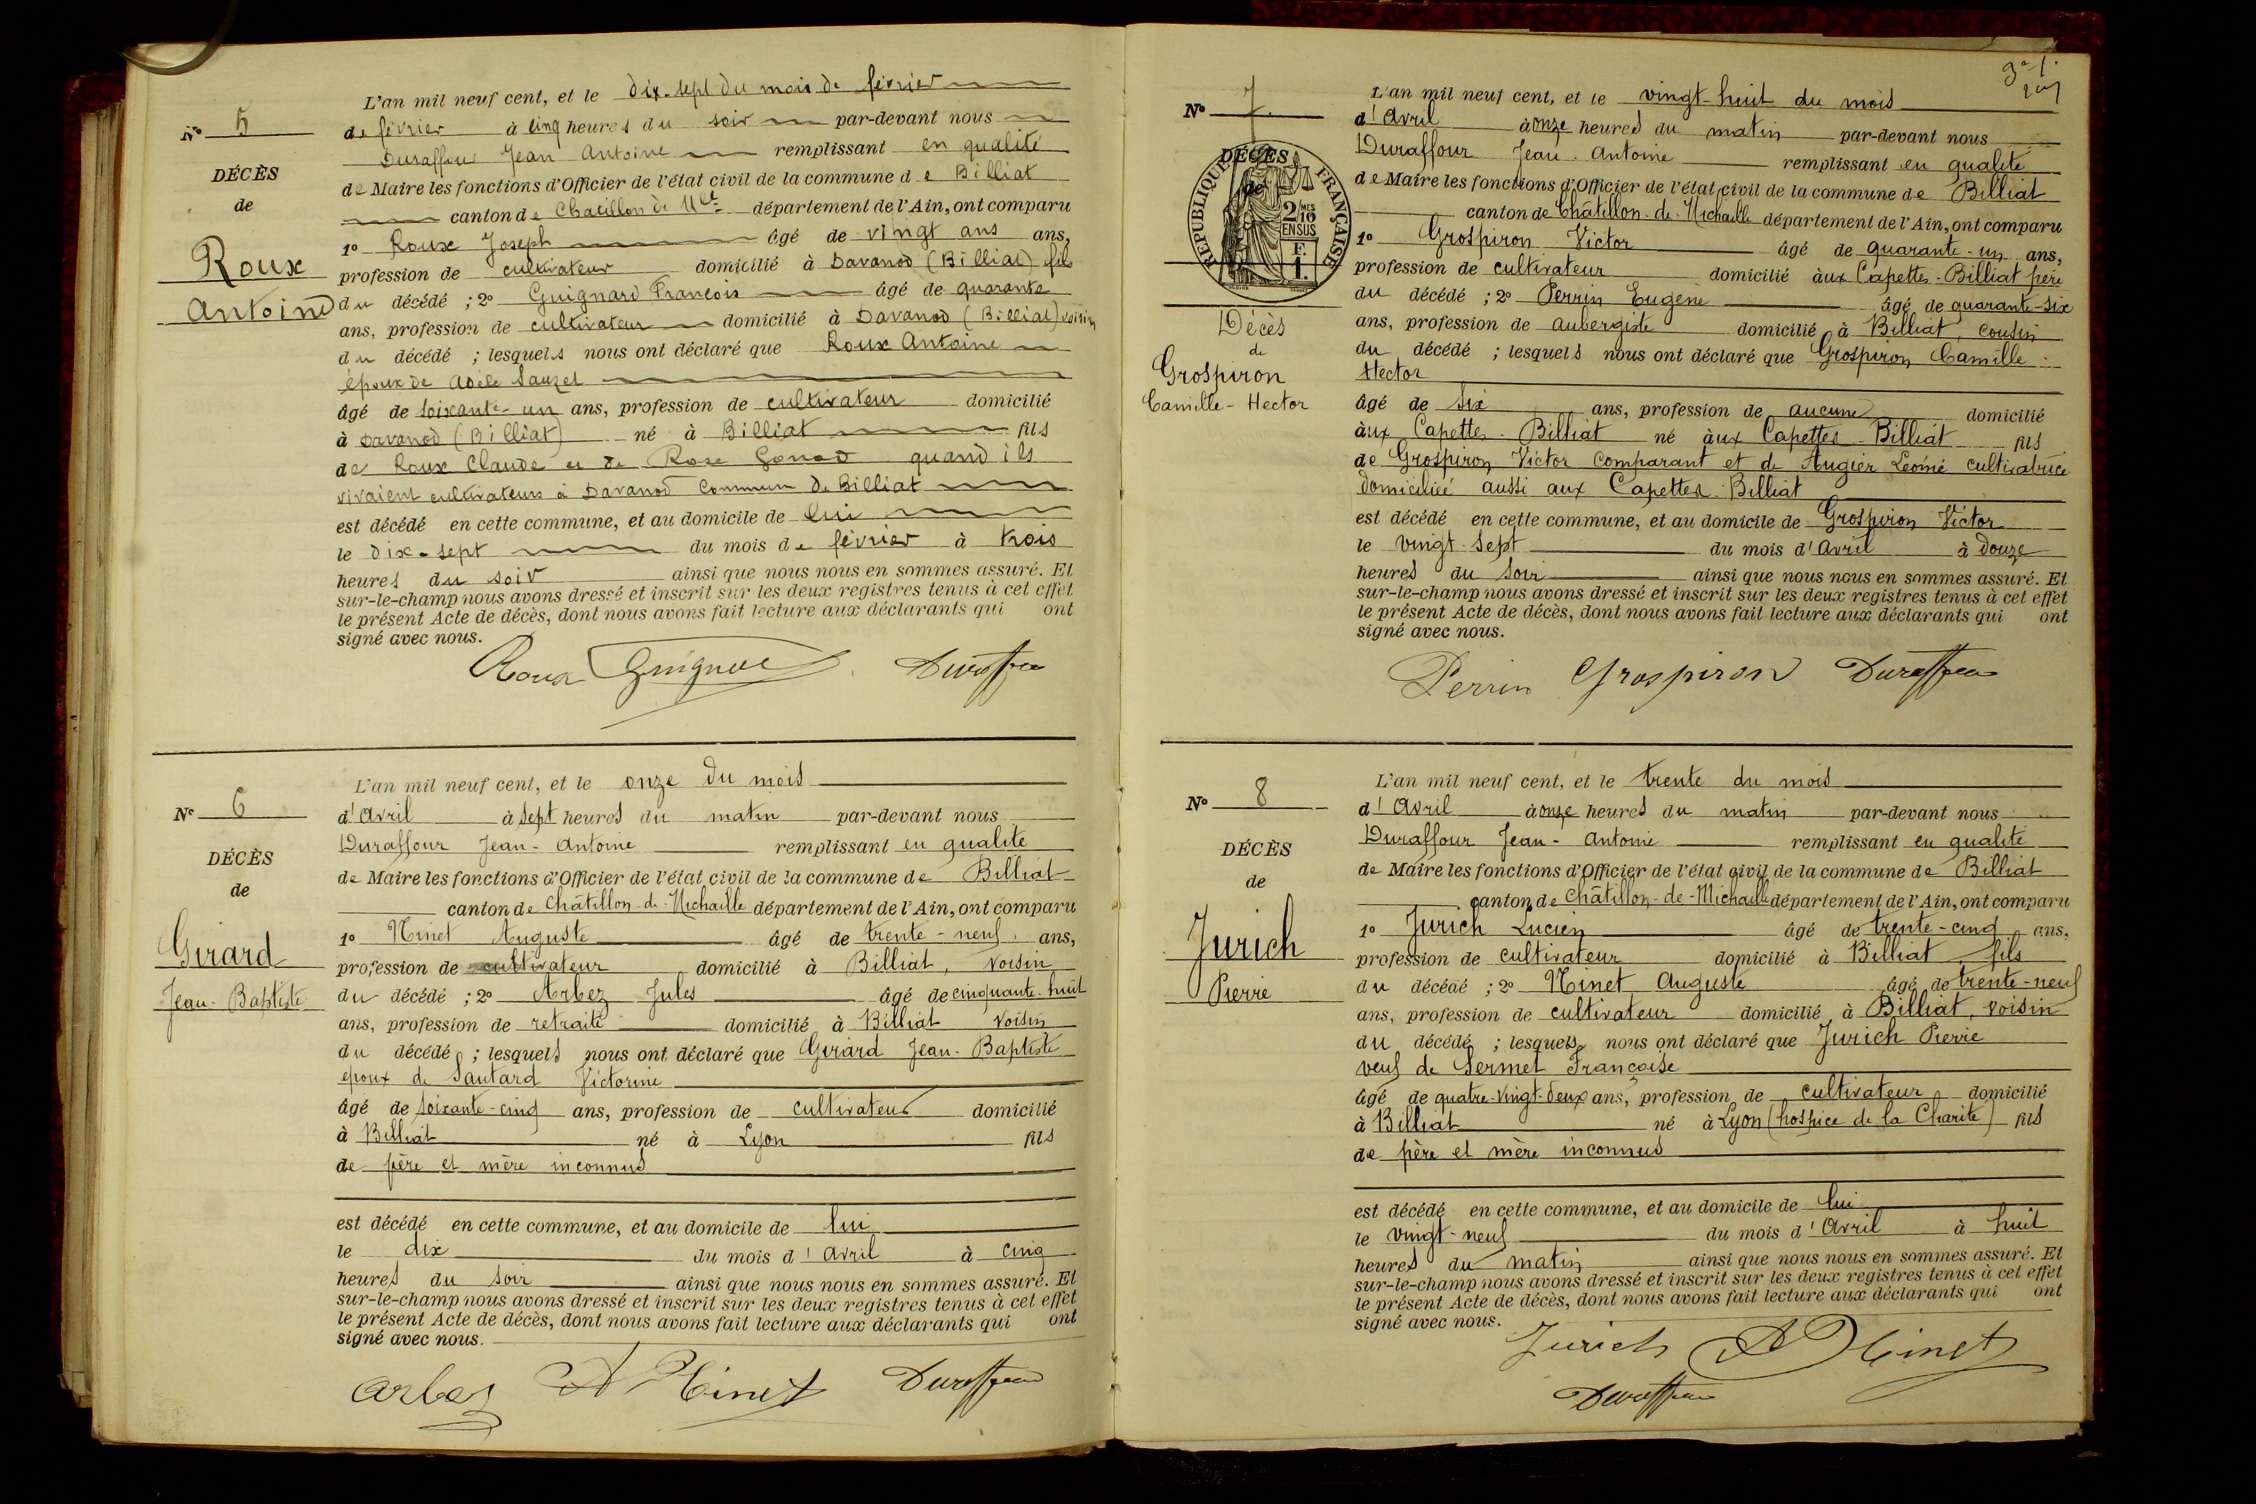 N° 5
DÉCÈS
de
Roux
Antoine
L'an mil neuf cent, et le dix-sept du mois de février
de février à cinq heures du soir par-devant nous
Duraffour Jean Antoine remplissant en qualité
de Maire les fonctions d'Officier de l'état civil de la commune de Billiat
canton de Chatillon de Mlle département de l'Ain, ont comparu
1° Roux Joseph âgé de vingt ans ans,
profession de cultivateur domicilié à Davanod (Billiat) fils
du décédé ; 2° Guignard François âgé de quarante
ans, profession de cultivateur domicilié à Davanod (Billiat) voisin
du décédé ; lesquels nous ont déclaré que Roux Antoine
époux de Adèle Sauzet
âgé de soixante-un ans, profession de cultivateur domicilié
à Davanod (Billiat) né à Billiat fils
de Roux Claude et de Rose Gonod quand ils
vivaient cultivateurs à Davanod Commun de Billiat
est décédé en cette commune, et au domicile de lui
le dix-sept du mois de février à trois
heures du soir ainsi que nous nous en sommes assuré. Et
sur-le-champ nous avons dressé et inscrit sur les deux registres tenus à cet effet
le présent Acte de décès, dont nous avons fait lecture aux déclarants qui ont
signé avec nous.
Roux Guignard Duraffour
N° 6
DÉCÈS
de
Girard
Jean-Baptiste
L'an mil neuf cent, et le onze du mois
d'Avril à sept heures du matin par-devant nous
Duraffour Jean-Antoine remplissant en qualité
de Maire les fonctions d'Officier de l'état civil de la commune de Billiat
canton de Châtillon-de-Michaille département de l'Ain, ont comparu
1° Ninet Auguste âgé de trente-neuf ans,
profession de cultivateur domicilié à Billiat, voisin
du décédé ; 2° Arbez Jules âgé de cinquante-huit
ans, profession de retraité domicilié à Billiat voisin
du décédé ; lesquels nous ont déclaré que Girard Jean-Baptiste
époux de Sautard Victorine
âgé de soixante-cinq ans, profession de cultivateur domicilié
à Billiat né à Lyon fils
de père et mère inconnus
est décédé en cette commune, et au domicile de lui
le dix du mois d'Avril à cinq
heures du soir ainsi que nous nous en sommes assuré. Et
sur-le-champ nous avons dressé et inscrit sur les deux registres tenus à cet effet
le présent Acte de décès, dont nous avons fait lecture aux déclarants qui ont
signé avec nous.
Arbez A Ninet Duraffour
N° 7
DÉCÈS
de
RÉPUBLIQUE FRANÇAISE
2/10 MES
EN SUS
F.
1.
Décès
de
Grospiron
Camille-Hector
L'an mil neuf cent, et le vingt-huit du mois
d'Avril à onze heures du matin par-devant nous
Duraffour Jean-Antoine remplissant en qualité
de Maire les fonctions d'Officier de l'état civil de la commune de Billiat
canton de Châtillon-de-Michaille département de l'Ain, ont comparu
1° Grospiron Victor âgé de quarante-un ans,
profession de cultivateur domicilié àux Capettes-Billiat père
du décédé ; 2° Perrin Eugène âgé de quarante-six
ans, profession de aubergiste domicilié à Billiat, cousin
du décédé ; lesquels nous ont déclaré que Grospiron Camille
Hector
âgé de six ans, profession de aucune domicilié
àux Capettes-Billiat né àux Capettes-Billiat fils
de Grospiron Victor comparant et de Augier Léonie cultivatrice
domiciliée aussi aux Capettes-Billiat
est décédé en cette commune, et au domicile de Grospiron Victor
le vingt-sept du mois d'Avril à douze
heures du soir ainsi que nous nous en sommes assuré. Et
sur-le-champ nous avons dressé et inscrit sur les deux registres tenus à cet effet
le présent Acte de décès, dont nous avons fait lecture aux déclarants qui ont
signé avec nous.
Perrin Grospiron Duraffour
N° 8
DÉCÈS
de
Jurich
Pierre
L'an mil neuf cent, et le trente du mois
d'Avril à onze heures du matin par-devant nous
Duraffour Jean-Antoine remplissant en qualité
de Maire les fonctions d'Officier de l'état civil de la commune de Billiat
canton de Châtillon-de-Michaille département de l'Ain, ont comparu
1° Jurich Lucien âgé de trente-cinq ans,
profession de cultivateur domicilié à Billiat fils
du décédé ; 2° Ninet Auguste âgé de trente-neuf
ans, profession de cultivateur domicilié à Billiat, voisin
du décédé ; lesquels nous ont déclaré que Jurich Pierre
veuf de Sermet Françoise
âgé de quatre-vingt-deux ans, profession de cultivateur domicilié
à Billiat né à Lyon (hospice de la Charité) fils
de père et mère inconnus
est décédé en cette commune, et au domicile de lui
le vingt-neuf du mois d'Avril à huit
heures du matin ainsi que nous nous en sommes assuré. Et
sur-le-champ nous avons dressé et inscrit sur les deux registres tenus à cet effet
le présent Acte de décès, dont nous avons fait lecture aux déclarants qui ont
signé avec nous.
Jurich A Ninet
Duraffour